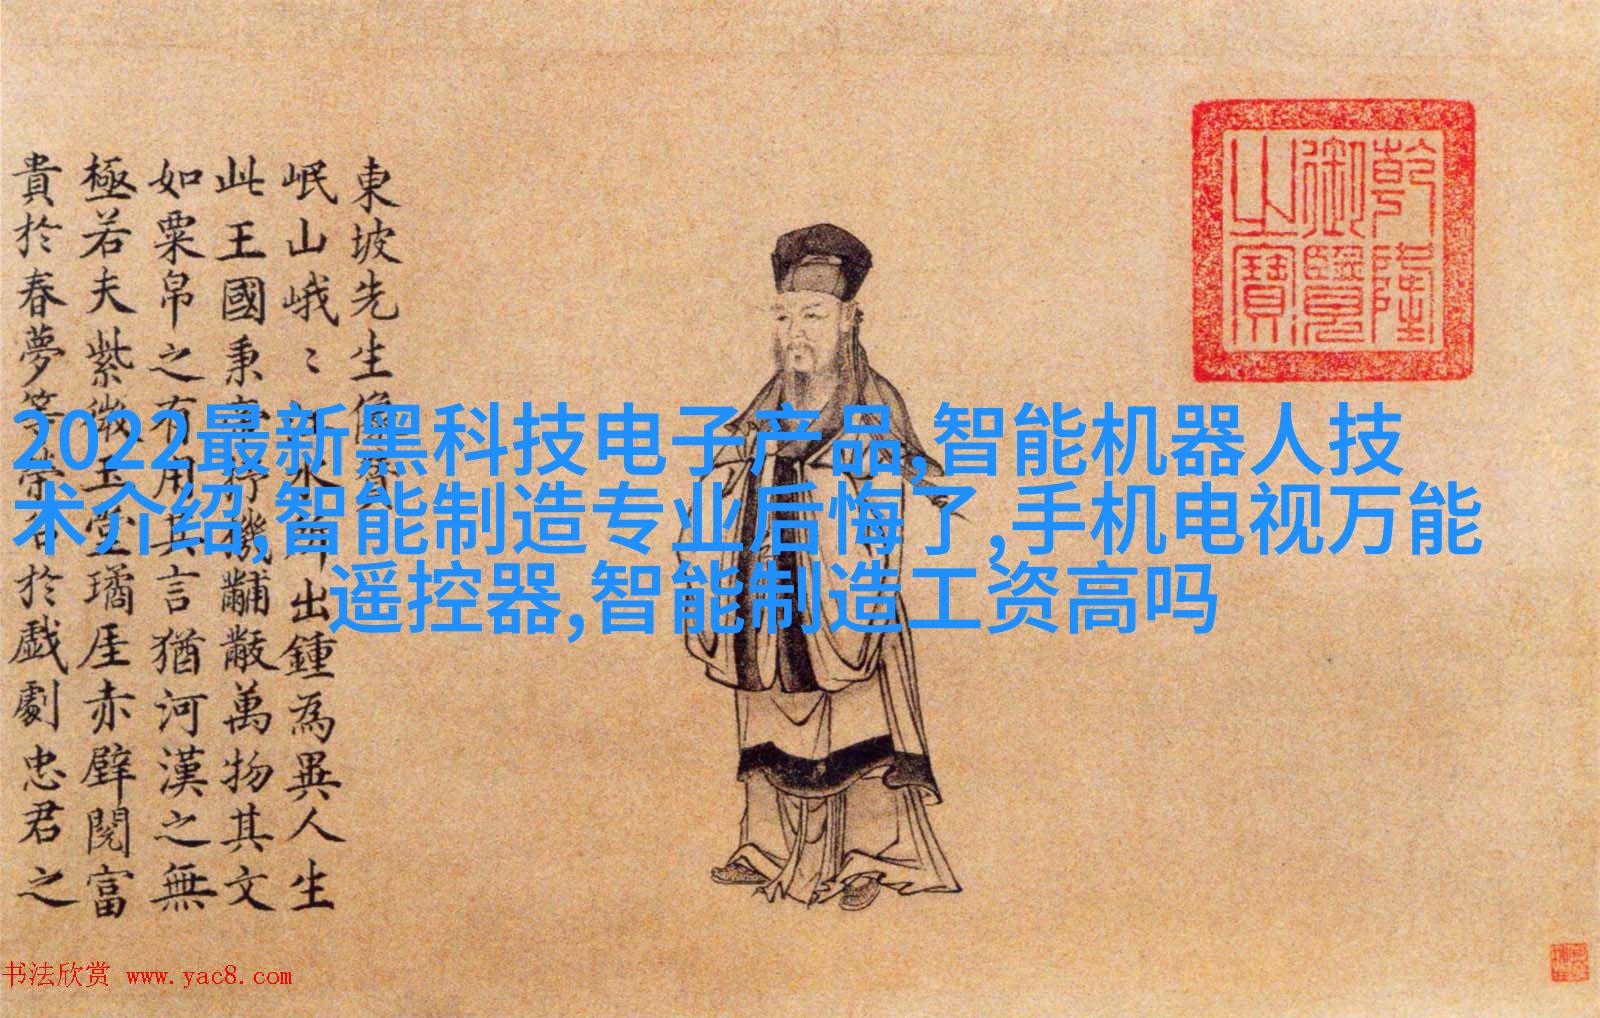 東坡先生像贊
岷山峨〻江水所出鍾為異人生
此王國秉帝杼機黼黻萬物其文
如粟帛之有用其言猶河漢之無
極若夫紫微玉堂璚厓赤壁閱富
貴於春夢等榮名於戲劇忠君之
乾隆
御覽
之寶
2022最新黑科技电子产品,智能机器人技
术介绍,智能制造专业后悔了,手机电视万能
遥控器,智能制造工资高吗
书法欣赏 www.yac8.com